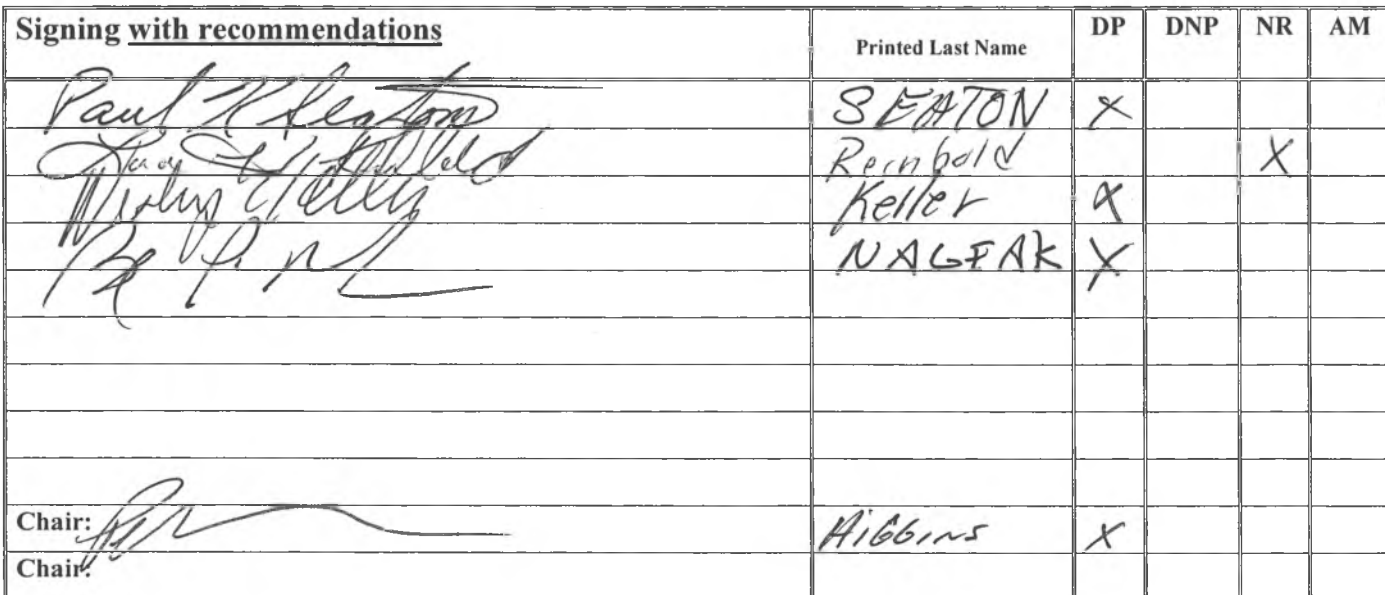 Signing with recommendations Printed Last Name DP DNP NR AM
Paul K Seaton SEATON X
Reinbold X
Keller X
NAGEAK X
Chair: HiGGins X
Chair: